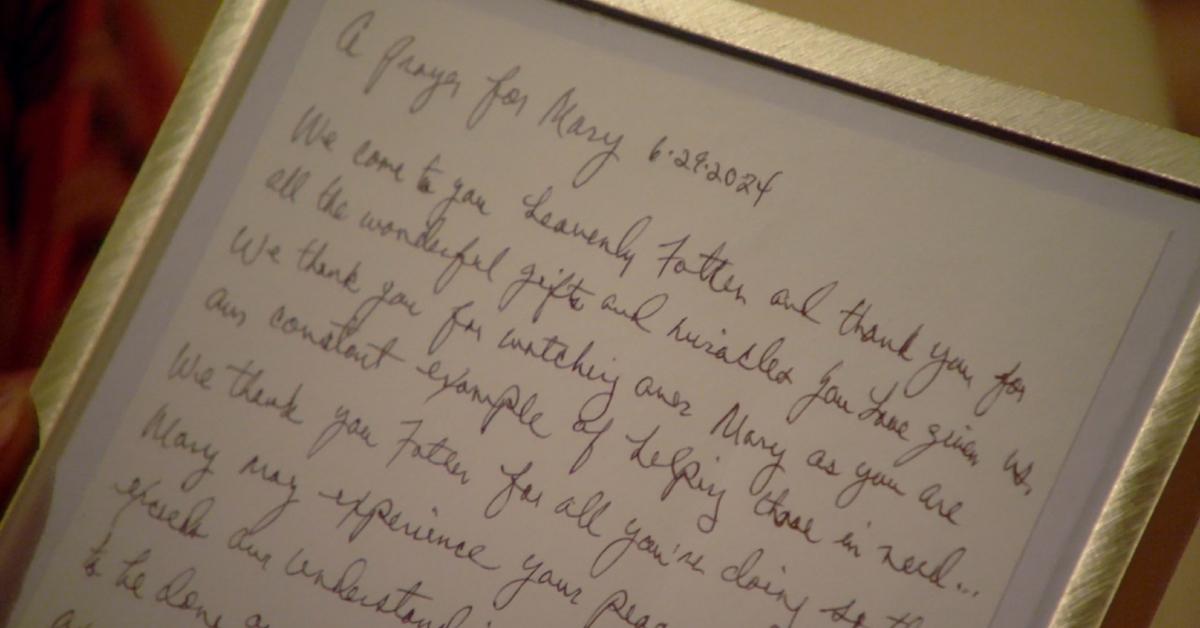 A Prayer for Mary 6·29·2024
We come to you Heavenly Father and thank you for
all the wonderful gifts and miracles you have given us.
We thank you for watching over Mary as you are
our constant example of helping those in need...
We thank you Father for all you're doing so th
Mary may experience your peac
exceeds our understandi
to be done